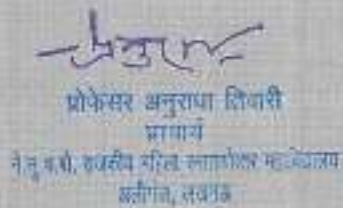 प्रोफेसर अनुराधा तिवारी
प्राचार्य
राजकीय महिला स्नातकोत्तर महाविद्यालय
अलीगंज, लखनऊ